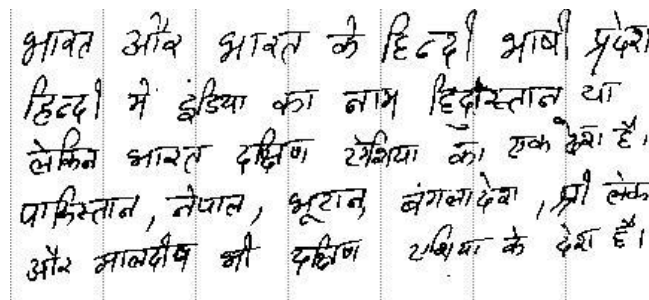 भारत और भारत के हिन्दी भाषी प्रदेश
हिन्दी में इंडिया का नाम हिंदुस्तान था
लेकिन भारत दक्षिण एशिया का एक देश है।
पाकिस्तान, नेपाल, भूटान, बंगलादेश, श्री लंक
और मालदीव भी दक्षिण एशिया के देश है।